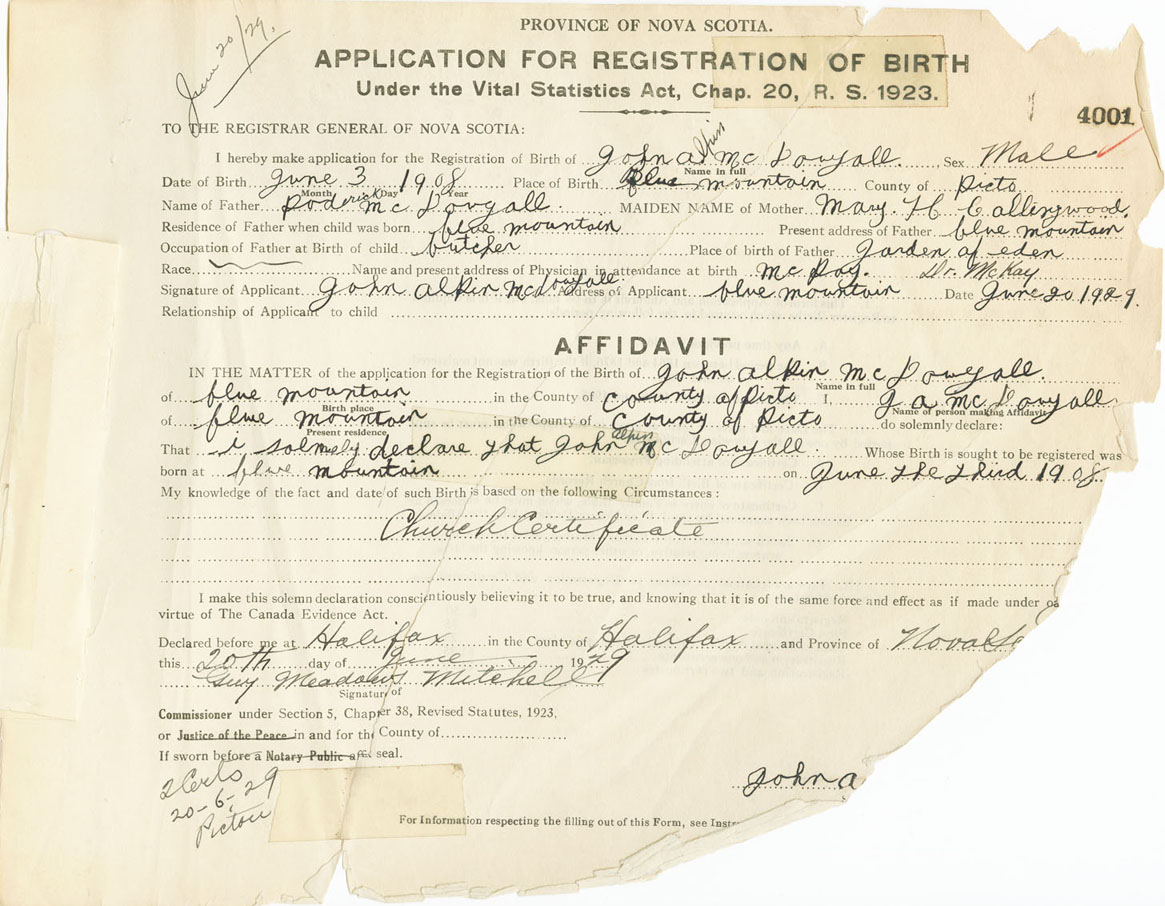 PROVINCE OF NOVA SCOTIA.
June 20/29.
APPLICATION FOR REGISTRATION OF BIRTH
Under the Vital Statistics Act, Chap. 20, R. S. 1923.
4001
TO THE REGISTRAR GENERAL OF NOVA SCOTIA:
I hereby make application for the Registration of Birth of John a Alpin Mc Dougall. Sex Male
Name in full
Date of Birth June 3 1908 Place of Birth Blue mountain County of Picto
Month Day Year
Name of Father Roderick Mc Dougall. MAIDEN NAME of Mother Mary. H Collingwood.
Residence of Father when child was born blue mountain Present address of Father blue mountain
Occupation of Father at Birth of child butcher Place of birth of Father Jarden of eden
Race Name and present address of Physician in attendance at birth Mc Kay. Dr. McKay
Signature of Applicant John Alpin McDougall Address of Applicant blue mountain Date June 20 1929.
Relationship of Applicant to child
AFFIDAVIT
IN THE MATTER of the application for the Registration of the Birth of John alpin Mc Dougall.
Name in full
of blue mountain in the County of County of Picto I, J a Mc Dougall
Birth place
Name of person making Affidavit
of blue mountain in the County of County of Picto do solemnly declare:
Present residence
That i solmely declare that John alpin Mc Dougall Whose Birth is sought to be registered was
born at blue mountain on June the third 1908.
My knowledge of the fact and date of such Birth is based on the following Circumstances:
Church Certificate
I make this solemn declaration conscientiously believing it to be true, and knowing that it is of the same force and effect as if made under oa
virtue of The Canada Evidence Act.
Declared before me at Halifax in the County of Halifax and Province of Nova Sc
this 20th day of June 1929
Guy Meadows Mitchell
Signature of
Commissioner under Section 5, Chapter 38, Revised Statutes, 1923,
or Justice of the Peace in and for the County of
If sworn before a Notary Public affix seal.
2 Certs
20-6-29
Pictou
John a
For Information respecting the filling out of this Form, see Instr